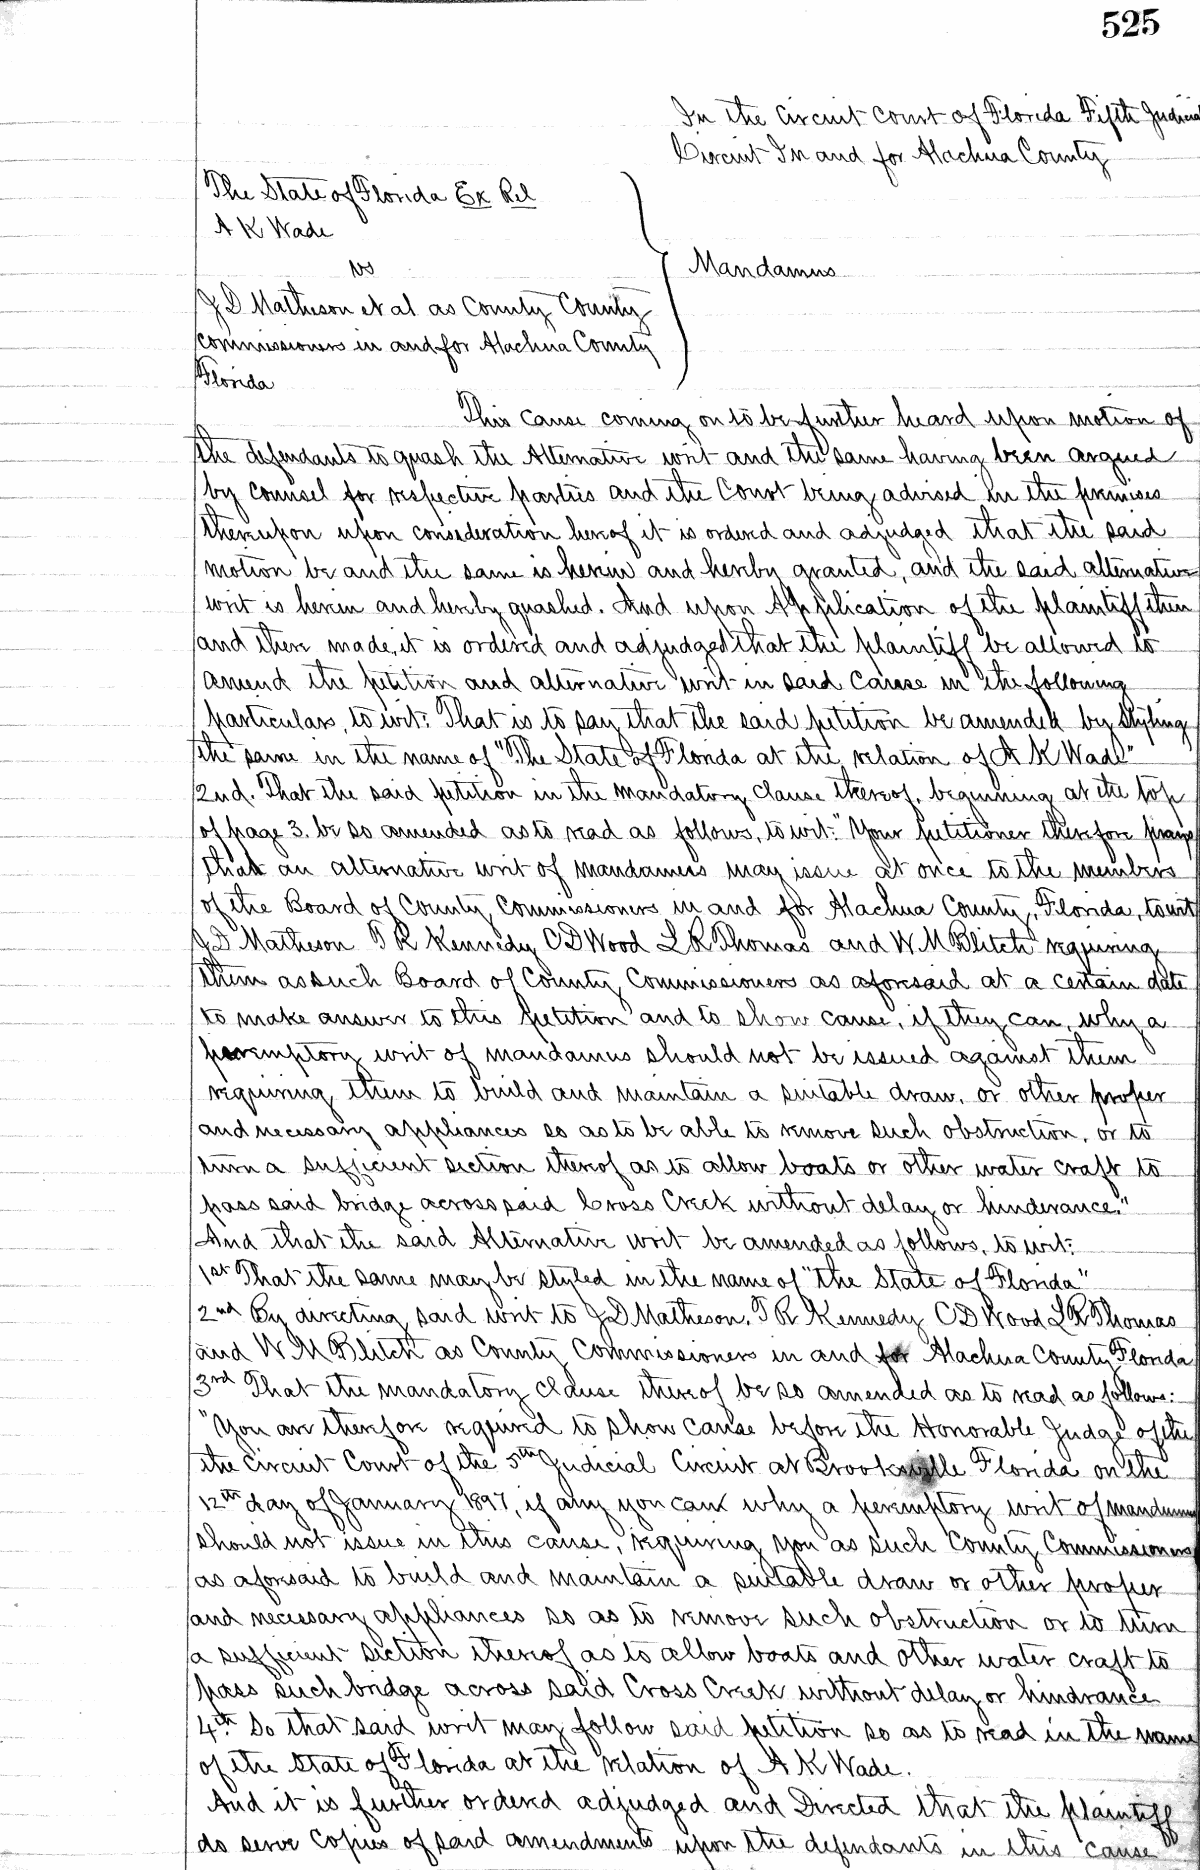 525
In the Circuit Court of Florida Fifth Judicial
Circuit In and for Alachua County
The State of Florida Ex Rel
A K Wade
vs
Mandamus
J D Matheson et al as County County
commissioners in and for Alachua County
Florida
This cause coming on to be further heard upon motion of
the defendants to quash the Alternative writ and the same having been argued
by counsel for respective parties and the Court being advised in the premises
thereupon upon consideration hereof it is ordered and adjudged that the said
motion be and the same is herein and hereby granted, and the said alternative
writ is herein and hereby quashed. And upon Application of the plaintiff then
and there made, it is ordered and adjudged that the plaintiff be allowed to
amend the petition and alternative writ in said cause in the following
particulars, to wit: That is to say that the said petition be amended by styling
the same in the name of "The State of Florida at the relation of A K Wade"
2nd. That the said petition in the mandatory clause thereof, beginning at the top
of page 3. be so amended as to read as follows, to wit: "Your petitioner therefore prays
that an alternative writ of mandamus may issue at once to the members
of the Board of County Commissioners in and for Alachua County, Florida, to wit
J D Matheson T R Kennedy C D Wood L R Thomas and W M Blitch requiring
them as such Board of County Commissioners as aforesaid at a certain date
to make answer to this petition and to show cause, if they can, why a
peremptory writ of mandamus should not be issued against them
requiring them to build and maintain a suitable draw, or other proper
and necessary appliances so as to be able to remove such obstruction, or to
turn a sufficient section thereof as to allow boats or other water craft to
pass said bridge across said Cross Creek without delay or hinderance."
And that the said Alternative writ be amended as follows, to wit:
1st That the same may be styled in the name of "the State of Florida"
2nd By directing said writ to J D Matheson, T R Kennedy C D Wood L R Thomas
and W M Blitch as County Commissioners in and for Alachua County Florida
3rd That the mandatory clause thereof be so amended as to read as follows:
"You are therefore required to show cause before the Honorable Judge of the
the Circuit Court of the 5th Judicial Circuit at Brooksville Florida on the
12th day of January 1897, if any you can why a peremptory writ of mandamus
should not issue in this cause, requiring you as such County Commissioners
as aforesaid to build and maintain a suitable draw or other proper
and necessary appliances so as to remove such obstruction or to turn
a sufficient section thereof as to allow boats and other water craft to
pass such bridge across said Cross Creek without delay or hindrance
4th So that said writ may follow said petition so as to read in the name
of the State of Florida at the relation of A K Wade.
And it is further ordered adjudged and Directed that the plaintiff
do serve Copies of said amendments upon the defendants in this cause